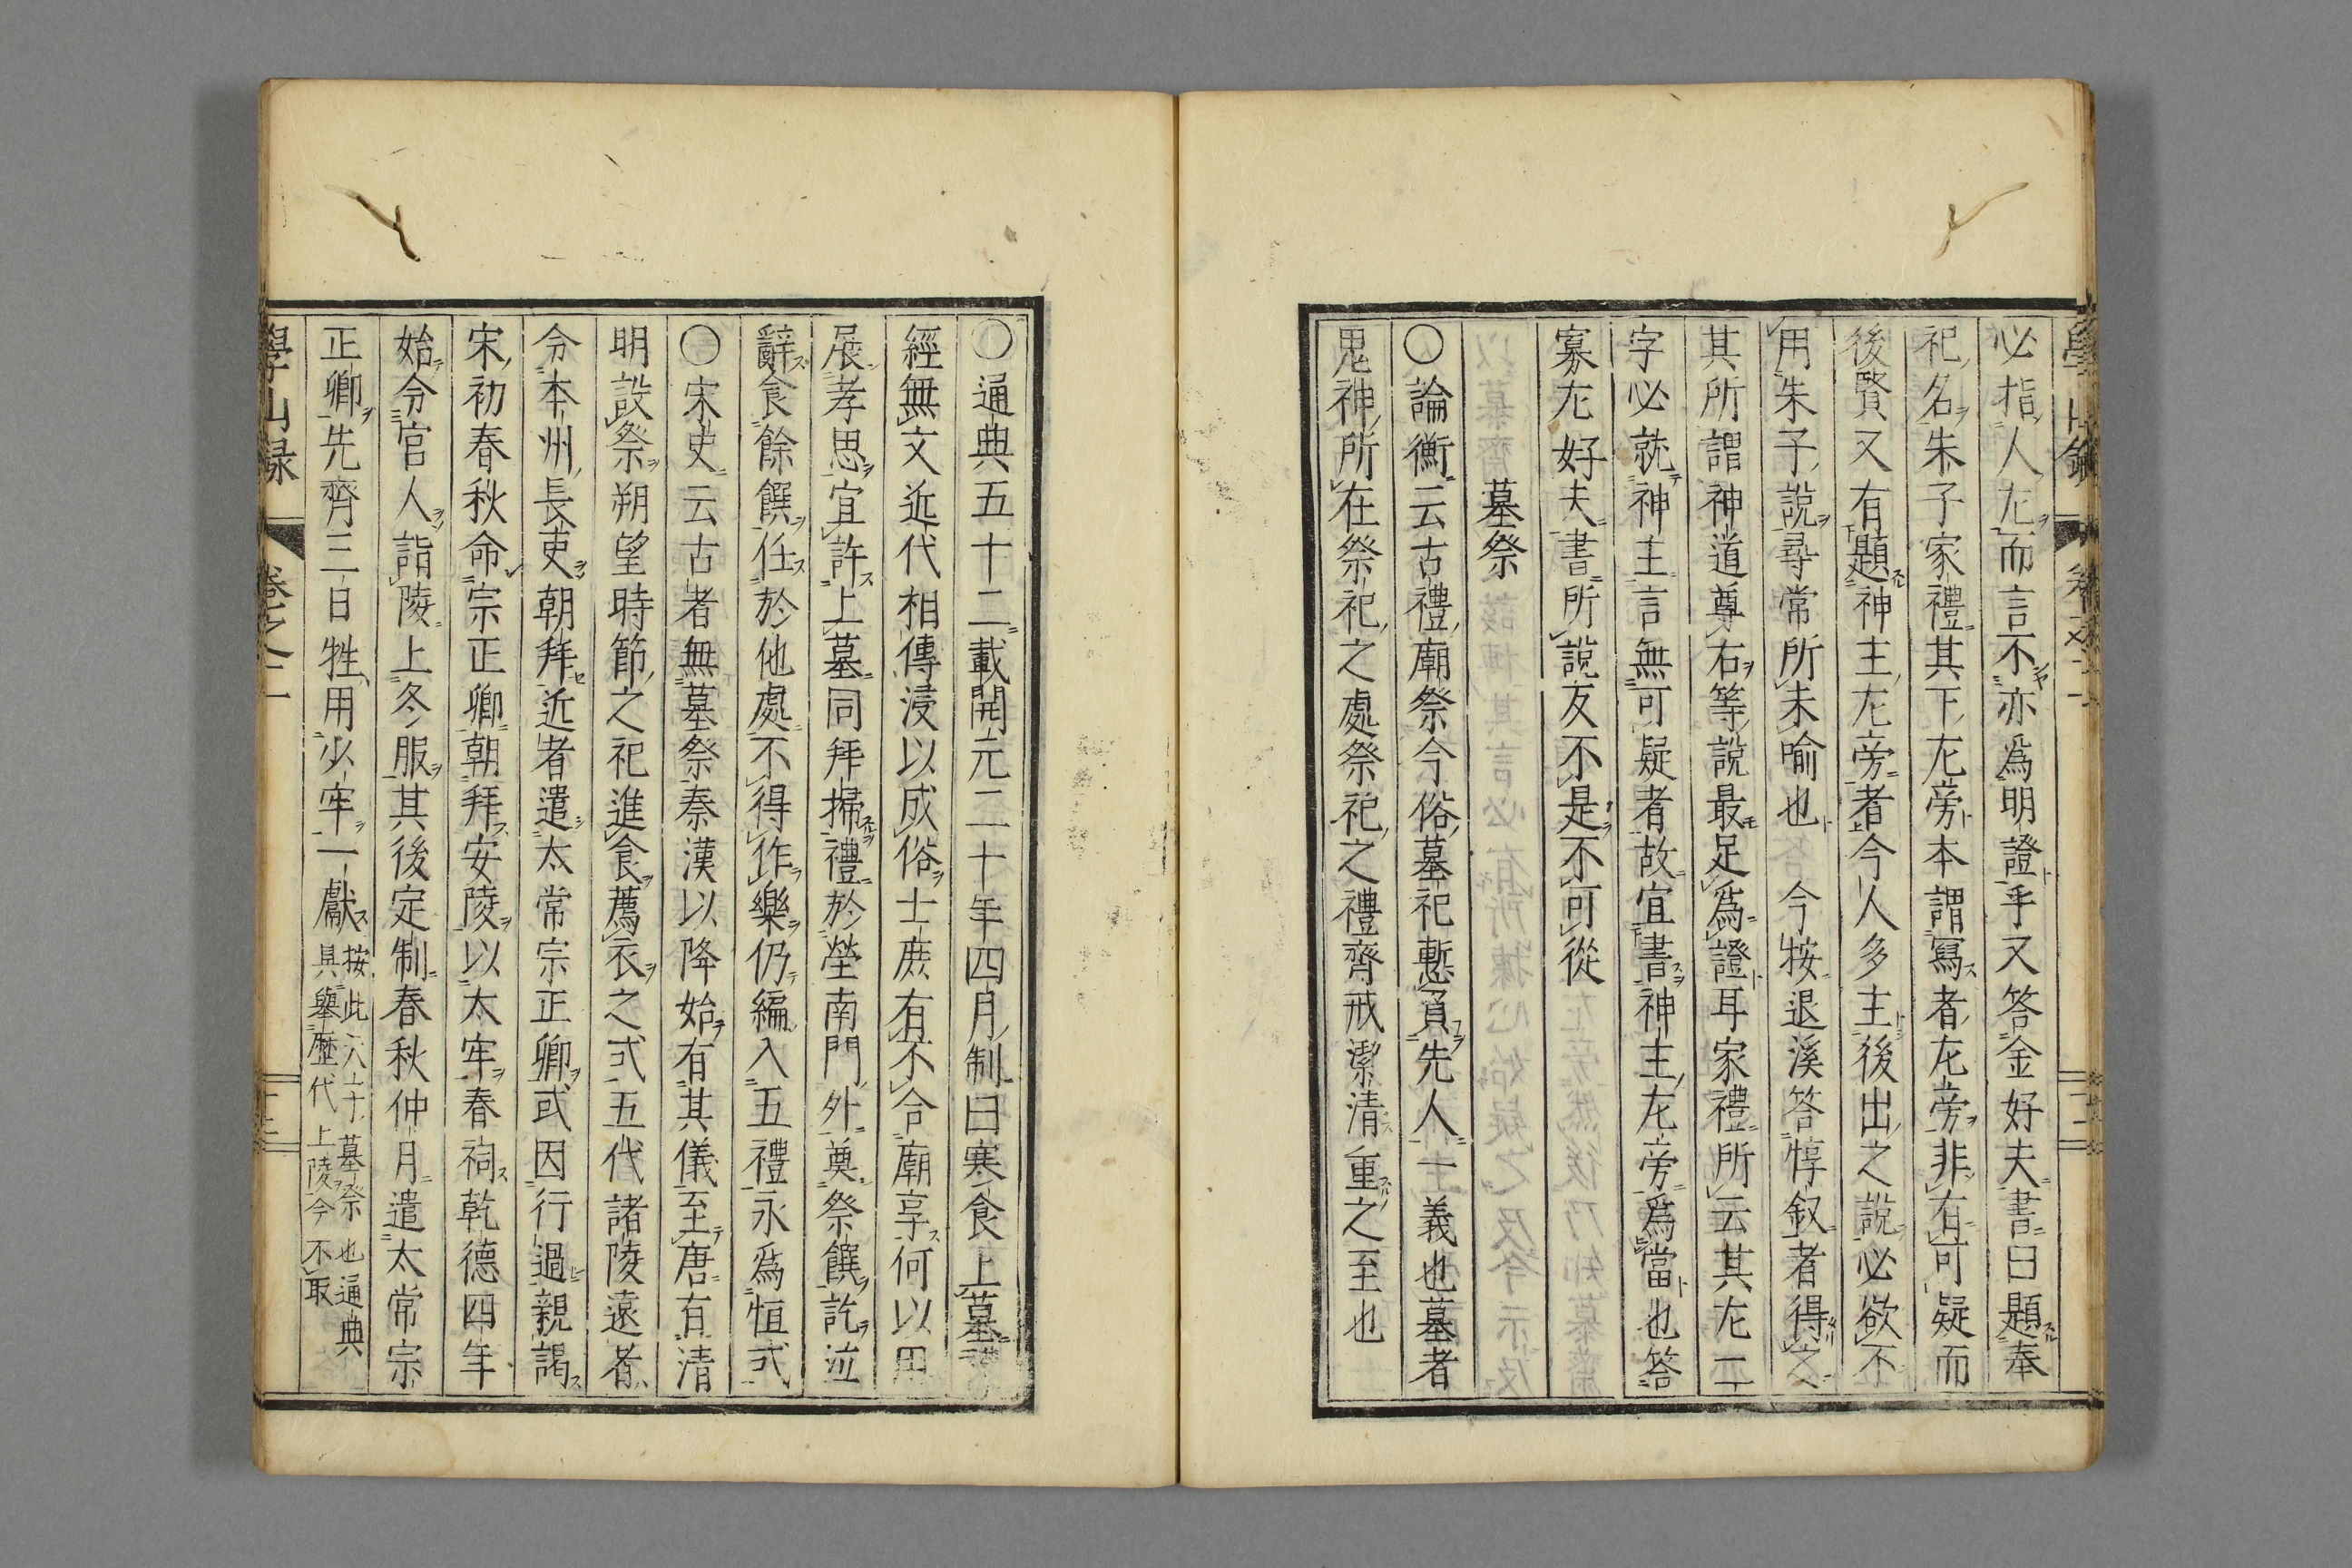 必指人左而言不亦爲明證乎又答金好夫書曰題奉
祀名朱子家禮其下左旁本謂寫者左旁非有可疑而
後賢又有題神主左旁者今人多主後出之說必欲不
用朱子說尋常所未喻也　今按退溪答惇叙者得之
其所謂神道尊右等說最足爲證耳家禮所云其左二
字必就神主言無可疑者故宜書神主左旁爲當也答
寡左好夫書所說友不是不可從
墓祭
○論衡云古禮廟祭今俗墓祀慙負先人一義也墓者
鬼神所在祭祀之處祭祀之禮齊戒潔清重之至也
○通典五十二載開元二十年四月制曰寒食上墓禮
經無文近代相傳浸以成俗士庶有不合廟享何以用
展孝思宜許上墓同拜掃禮於塋南門外奠祭饌訖泣
辭食餘饌任於他處不得作樂仍編入五禮永爲恒式
○宋史云古者無墓祭秦漢以降始有其儀至唐有清
明設祭朔望時節之祀進食薦衣之式五代諸陵遠者
令本州長吏朝拜近者遣太常宗正卿或因行過親謁
宋初春秋命宗正卿朝拜安陵以太牢春祠乾德四年
始令官人詣陵上冬服其後定制春秋仲月遣太常宗
正卿先齊三日牲用少牢一獻
按此六十墓祭也通典
具舉歷代上陵今不取
學山録　卷之二